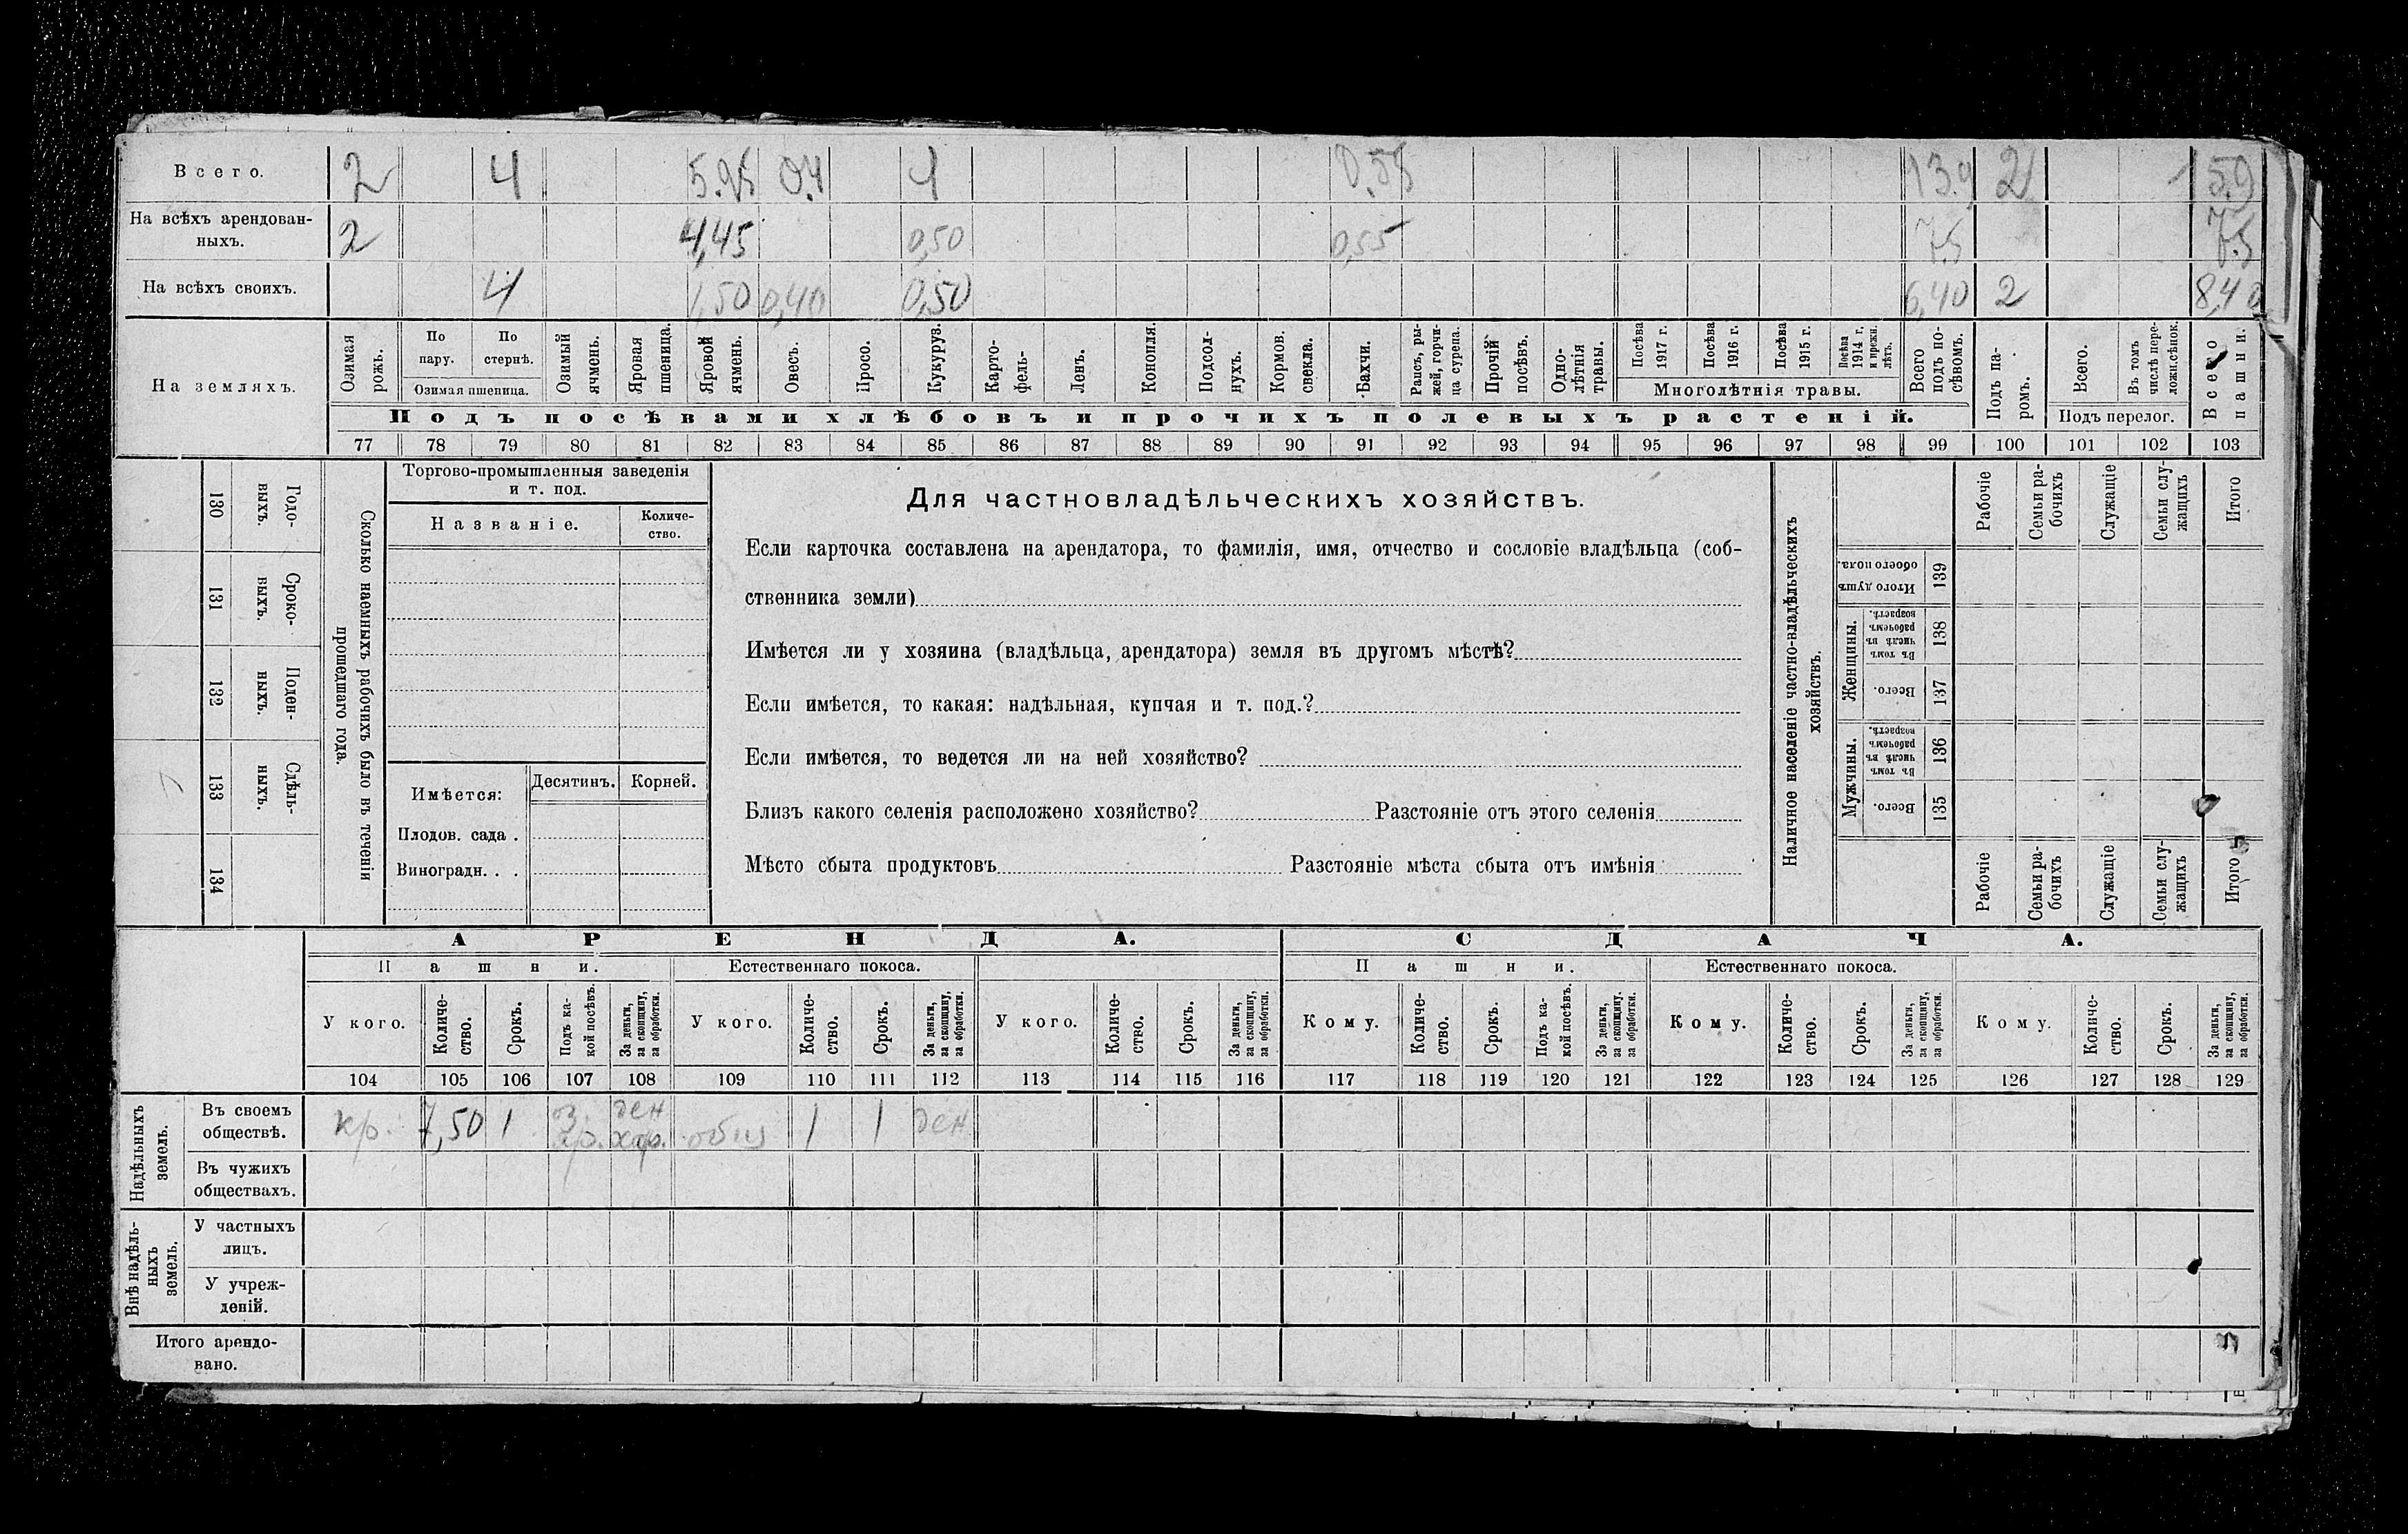 Всего. 2 4 5.95 0.4 1 0.55 13.9 2 15.9
На всѣхъ арендован-
ныхъ. 2 4,45 0,50 0,55 7.5 7.5
На всѣхъ своихъ. 4 1,50 0,40 0,50 6,40 2 8,40
На земляхъ.
Озимая рожь.
По пару.
По стернѣ.
Озимая пшеница.
Озимый ячмень.
Яровая пшеница.
Яровой ячмень.
Овесъ.
Просо.
Кукуруз.
Карто-
фель-
Ленъ.
Конопля.
Подсол-
нухъ.
Кормов. свекла.
Бахчи.
Рапсъ, ры-
жей, горчи-
ца сурепа.
Прочій посѣвъ.
Одно-
лѣтнія травы.
Посѣва 1917 г.
Посѣва 1916 г.
Посѣва 1915 г.
Посѣва 1914 г. и прежн. лѣтъ.
Многолѣтнія травы.
Всего подъ по-
сѣвомъ.
Подъ па-
ромъ.
Всего.
Въ томъ числѣ пере-
ложн.сѣнок.
Подъ перелог.
Всего пашни.
Подъ посѣвами хлѣбовъ и прочихъ полевыхъ растеній.
77 78 79 80 81 82 83 84 85 86 87 88 89 90 91 92 93 94 95 96 97 98 99 100 101 102 103
130 Годо-
выхъ.
131 Сроко-
выхъ.
132 Поден-
ныхъ.
133 Сдѣль-
ныхъ.
134
Сколько наемныхъ рабочихъ было въ теченіи
прошедшаго года.
Торгово-промышленныя заведенія
и т. под.
Названіе.
Количе-
ство.
Имѣется:
Десятинъ.
Корней.
Плодов. сада .
Виноградн. . .
Для частновладѣльческихъ хозяйствъ.
Если карточка составлена на арендатора, то фамилія, имя, отчество и сословіе владѣльца (соб-
ственника земли)
Имѣется ли у хозяина (владѣльца, арендатора) земля въ другомъ мѣстѣ?
Если имѣется, то какая: надѣльная, купчая и т. под.?
Если имѣется, то ведется ли на ней хозяйство?
Близъ какого селенія расположено хозяйство? Разстояніе отъ этого селенія
Мѣсто сбыта продуктовъ Разстояніе мѣста сбыта отъ имѣнія
Наличное населеніе частно-владѣльческихъ
хозяйствъ.
Рабочіе
Семьи ра-
бочихъ
Служащіе
Семьи слу-
жащихъ
Итого
Итого душъ обоего пола. 139
Женщины.
Въ томъ числѣ въ рабочемъ возрастѣ. 138
Всего. 137
Мужчины.
Въ томъ числѣ въ рабочемъ возрастѣ. 136
Всего. 135
Рабочіе
Семьи ра-
бочихъ
Служащіе
Семьи слу-
жащихъ
Итого
АРЕНДА. СДАЧА.
Пашни. Естественнаго покоса. Пашни. Естественнаго покоса.
У кого.
Количе-
ство.
Срокъ.
Подъ ка-
кой посѣвъ.
За деньги,
за скопщину,
за обработки.
У кого.
Количе-
ство.
Срокъ.
За деньги,
за скопщину,
за обработки.
У кого.
Количе-
ство.
Срокъ.
За деньги,
за скопщину,
за обработки.
Кому.
Количе-
ство.
Срокъ.
Подъ ка-
кой посѣвъ.
За деньги,
за скопщину.
за обработки.
Кому.
Количе-
ство.
Срокъ.
За деньги,
за скопщину,
за обработки.
Кому.
Количе-
ство.
Срокъ.
За деньги,
за скопщину,
за обработки.
104 105 106 107 108 109 110 111 112 113 114 115 116 117 118 119 120 121 122 123 124 125 126 127 128 129
Надѣльныхъ
земель.
Въ своемъ
обществѣ.
кр. 7,50 1 оз. яр. ден 1 1 ден
Въ чужихъ
обществахъ.
Внѣ надѣль-
ныхъ
земель.
У частныхъ
лицъ.
У учреж-
деній.
Итого арендо-
вано.